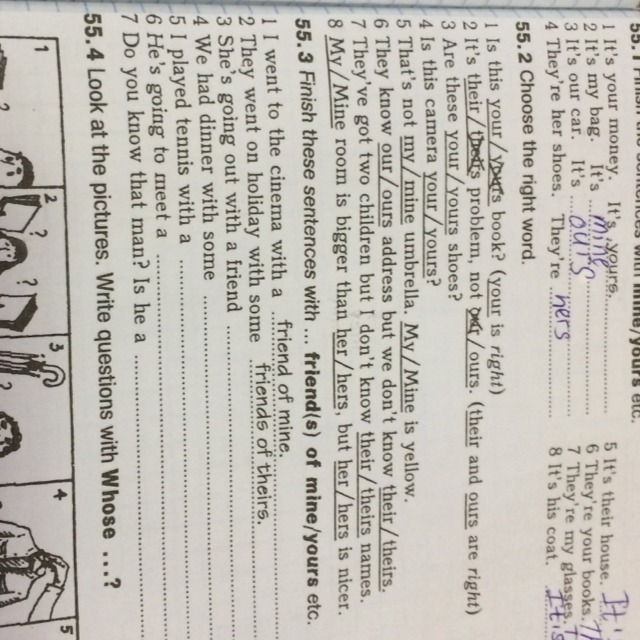 1 It's your money. It's yours.
2 It's my bag. It's mine
3 It's our car. It's ours
4 They're her shoes. They're hers
5 It's their house.
6 They're your books.
7 They're my glasses.
8 It's his coat. It's
55.2 Choose the right word.
1 Is this your/yours book? (your is right)
2 It's their/theirs problem, not our/ours. (their and ours are right)
3 Are these your/yours shoes?
4 Is this camera your/yours?
5 That's not my/mine umbrella. My/Mine is yellow.
6 They know our/ours address but we don't know their/theirs.
7 They've got two children but I don't know their/theirs names.
8 My/Mine room is bigger than her/hers, but her/hers is nicer.
55.3 Finish these sentences with ... friend(s) of mine/yours etc.
1 I went to the cinema with a friend of mine.
2 They went on holiday with some friends of theirs.
3 She's going out with a friend
4 We had dinner with some
5 I played tennis with a
6 He's going to meet a
7 Do you know that man? Is he a
55.4 Look at the pictures. Write questions with Whose ...?
1
?
2
?
?
3
?
4
5